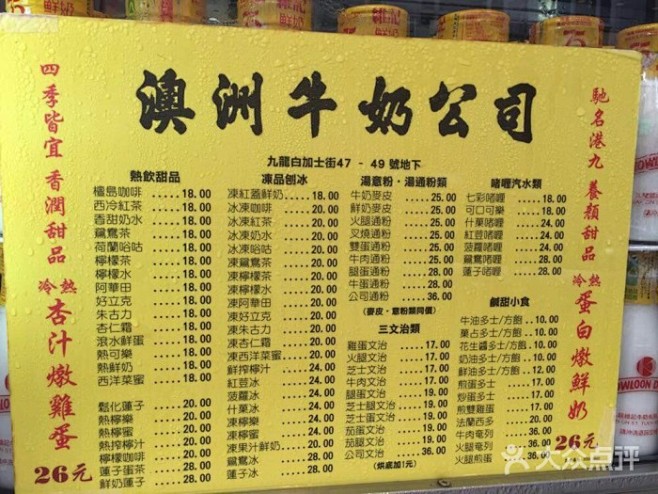 澳洲牛奶公司
九龍白加士街47 - 49號地下
四季皆宜 香潤甜品
冷熱 杏汁燉雞蛋
26元
馳名港九 養顏甜品
冷熱 蛋白燉鮮奶
26元
熱飲甜品
檀島咖啡 18.00
西冷紅茶 18.00
香甜奶水 18.00
鴛鴦茶 18.00
荷蘭哈咕 18.00
檸檬茶 18.00
檸檬水 18.00
阿華田 18.00
好立克 18.00
朱古力 18.00
杏仁霜 18.00
滾水鮮蛋 18.00
熱可樂 18.00
熱鮮奶 18.00
西洋菜蜜 18.00
鬆化蓮子 20.00
熱檸樂 20.00
熱檸蜜 20.00
熱搾檸汁 20.00
檸檬咖啡 20.00
蓮子蛋茶 28.00
鮮奶蓮子 28.00
凍品刨冰
凍紅蓋鮮奶 18.00
冰凍咖啡 20.00
冰凍紅茶 20.00
冰凍奶水 20.00
冰凍哈咕 20.00
凍鴛鴦茶 20.00
凍檸檬茶 20.00
凍檸檬水 20.00
凍阿華田 20.00
凍好立克 20.00
凍朱古力 20.00
凍杏仁霜 20.00
凍西洋菜蜜 20.00
鮮搾檸汁 24.00
紅荳冰 24.00
菠蘿冰 24.00
什菓冰 24.00
凍檸樂 24.00
凍檸蜜 24.00
凍菓汁鮮奶 24.00
鴛鴦冰 28.00
蓮子冰 28.00
湯意粉・湯通粉類
牛奶麥皮 25.00
鮮奶麥皮 25.00
火腿通粉 25.00
叉燒通粉 25.00
雙蛋通粉 25.00
牛肉通粉 28.00
腿蛋通粉 28.00
公司通粉 36.00
(麥皮、意粉類同價)
三文治類
雞蛋文治 17.00
火腿文治 17.00
芝士文治 17.00
牛肉文治 17.00
腿蛋文治 20.00
芝士腿文治 20.00
芝士蛋文治 20.00
茄蛋文治 20.00
茄腿文治 20.00
公司文治 36.00
(烘底加1元)
啫喱汽水類
七彩啫喱 18.00
可口可樂 18.00
什菓啫喱 24.00
紅荳啫喱 24.00
菠蘿啫喱 24.00
鴛鴦啫喱 28.00
蓮子啫喱 28.00
鹹甜小食
牛油多士/方飽 10.00
菓占多士/方飽 10.00
花生醬多士/方飽 10.00
奶油多士/方飽 12.00
鮮油多士/方飽 12.00
煎蛋多士 17.00
炒蛋多士 17.00
煎雙雞蛋 17.00
法蘭西多 20.00
牛肉奄列 36.00
火腿奄列 36.00
火腿煎蛋 36.00
大众点评